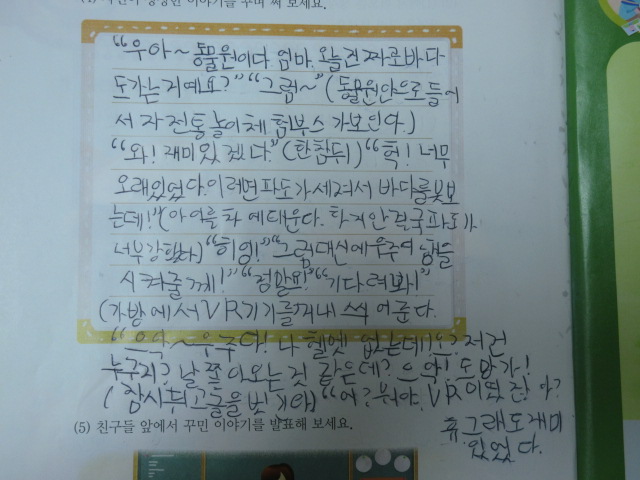 "우아~ 동물원이다. 엄마, 오늘 진짜로 바다
도 가는 거예요?" "그럼~" (동물원 안으로 들어
서 자 전통놀이 체험부스 가보인다.)
"와! 재미있겠다." (한참 뒤) "헉! 너무
오래 있었다. 이러면 파도가 세져서 바다를 못 보
는데!" (아이를 차에 태운다. 하지만 결국 파도가
너무 강했다) "히잉!" "그럼 대신에 우주여행을
시켜줄께!" "정말요!" "기다려봐!"
(가방에서 VR기기를 꺼내 씌어준다.
"으악~ 우주다! 나 헬멧 없는데!요? 저건
누구지? 날 쪽 이오는 것 같은데? 으악! 도망가!
(잠시 뒤 고글을 벗겨야) "어? 뭐야, VR이였잖! 아?
휴 그래도 재미
있었다.
(5) 친구들 앞에서 꾸민 이야기를 발표해 보세요.